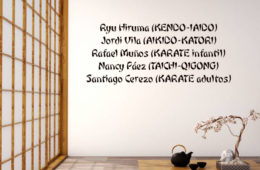 Ryu Hiruma (KENDO-IAIDO)
Jordi Vila (AIKIDO-KATORI)
Rafael Muños (KARATE infantil)
Nancy Páez (TAICHI-QIGONG)
Santiago Cerezo (KARATE adultos)